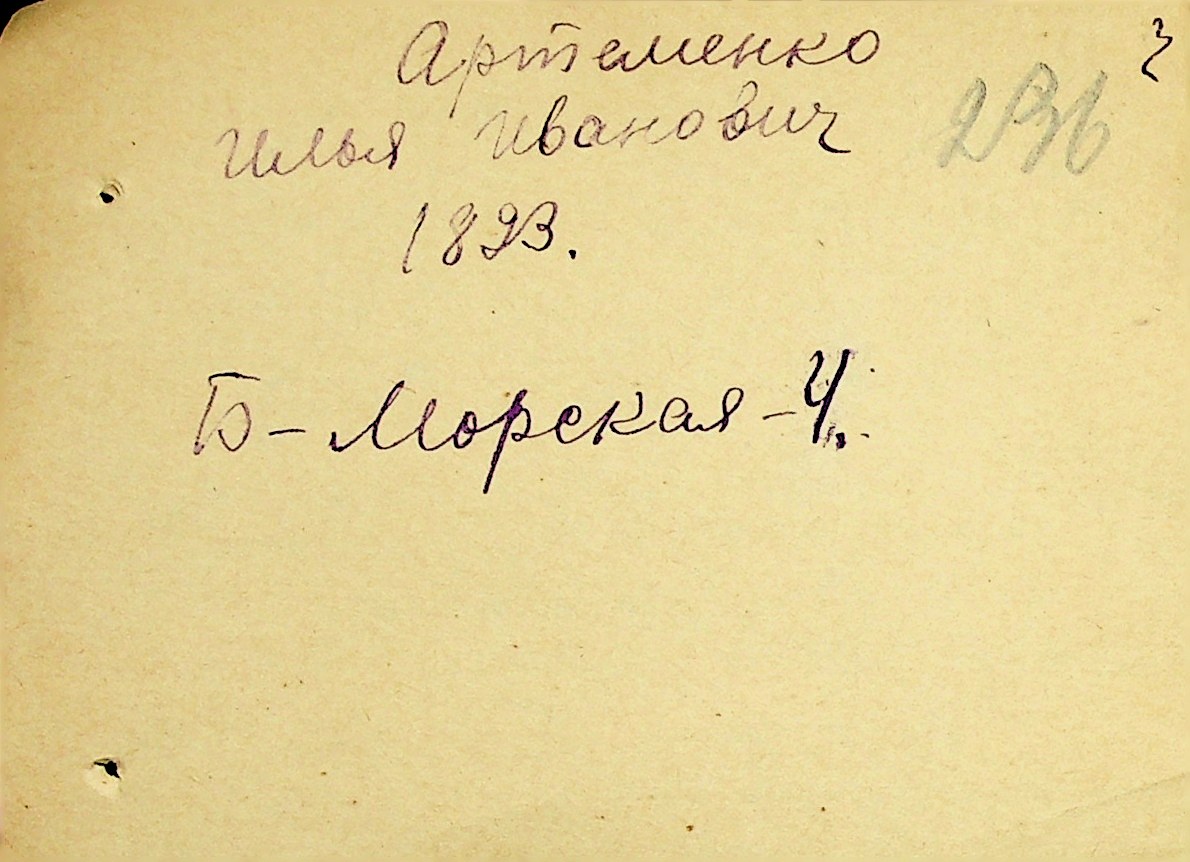 Артеменко
Илья Иванович
1893.
Б-Морская-4.